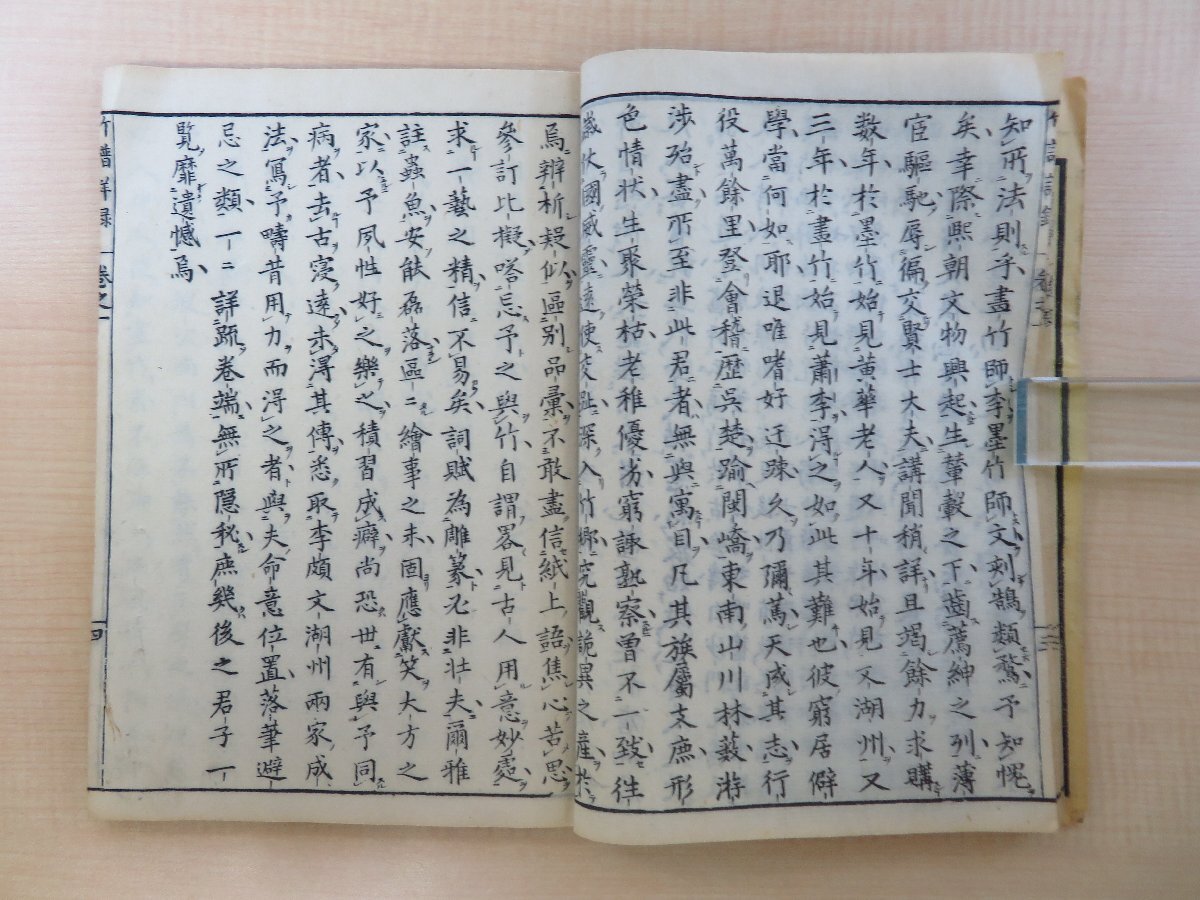 知所法則乎畫竹師李墨竹師文刻鵠類鶩予知愧
矣幸際熙朝文物興起生輦轂之下齒薦紳之列薄
宦驅馳辱徧交賢士大夫講聞稍詳且竭餘力求購
数年於墨竹始見黃華老人又十年始見文湖州又
三年於畫竹始見蕭李得之如此其難也彼窮居僻
學當何如耶退唯嗜好迂踈久乃彌篤天成其志行
役萬餘里登會稽歴吳楚踰閩嶠東南山川林薮游
涉殆盡所至非此君者無與寓目凡其族屬支庶形
色情状生聚榮枯老稚優劣窮諏熟察曽不一致往
歳仗國威靈遠使交趾深入竹郷究觀詭異之産於
焉辨析疑似區别品彙不敢盡信紙上語焦心苦思
參訂比擬嗒忘予之與竹自謂畧見古人用意妙處
求一藝之精信不易矣詞賦為雕篆尤非壮夫爾雅
註蟲魚安能磊落區〻繪事之末固應獻笑大方之
家以予夙性好之樂之積習成癖尚恐世有與予同
病者去古寖遠未得其傳悉取李頗文湖州兩家成
法寫予疇昔用力而得之者與夫命意位置落筆避
忌之類一〻詳疏卷端無所隠秘庶幾後之君子一
覧靡遺憾焉
竹譜詳録 卷之一
四